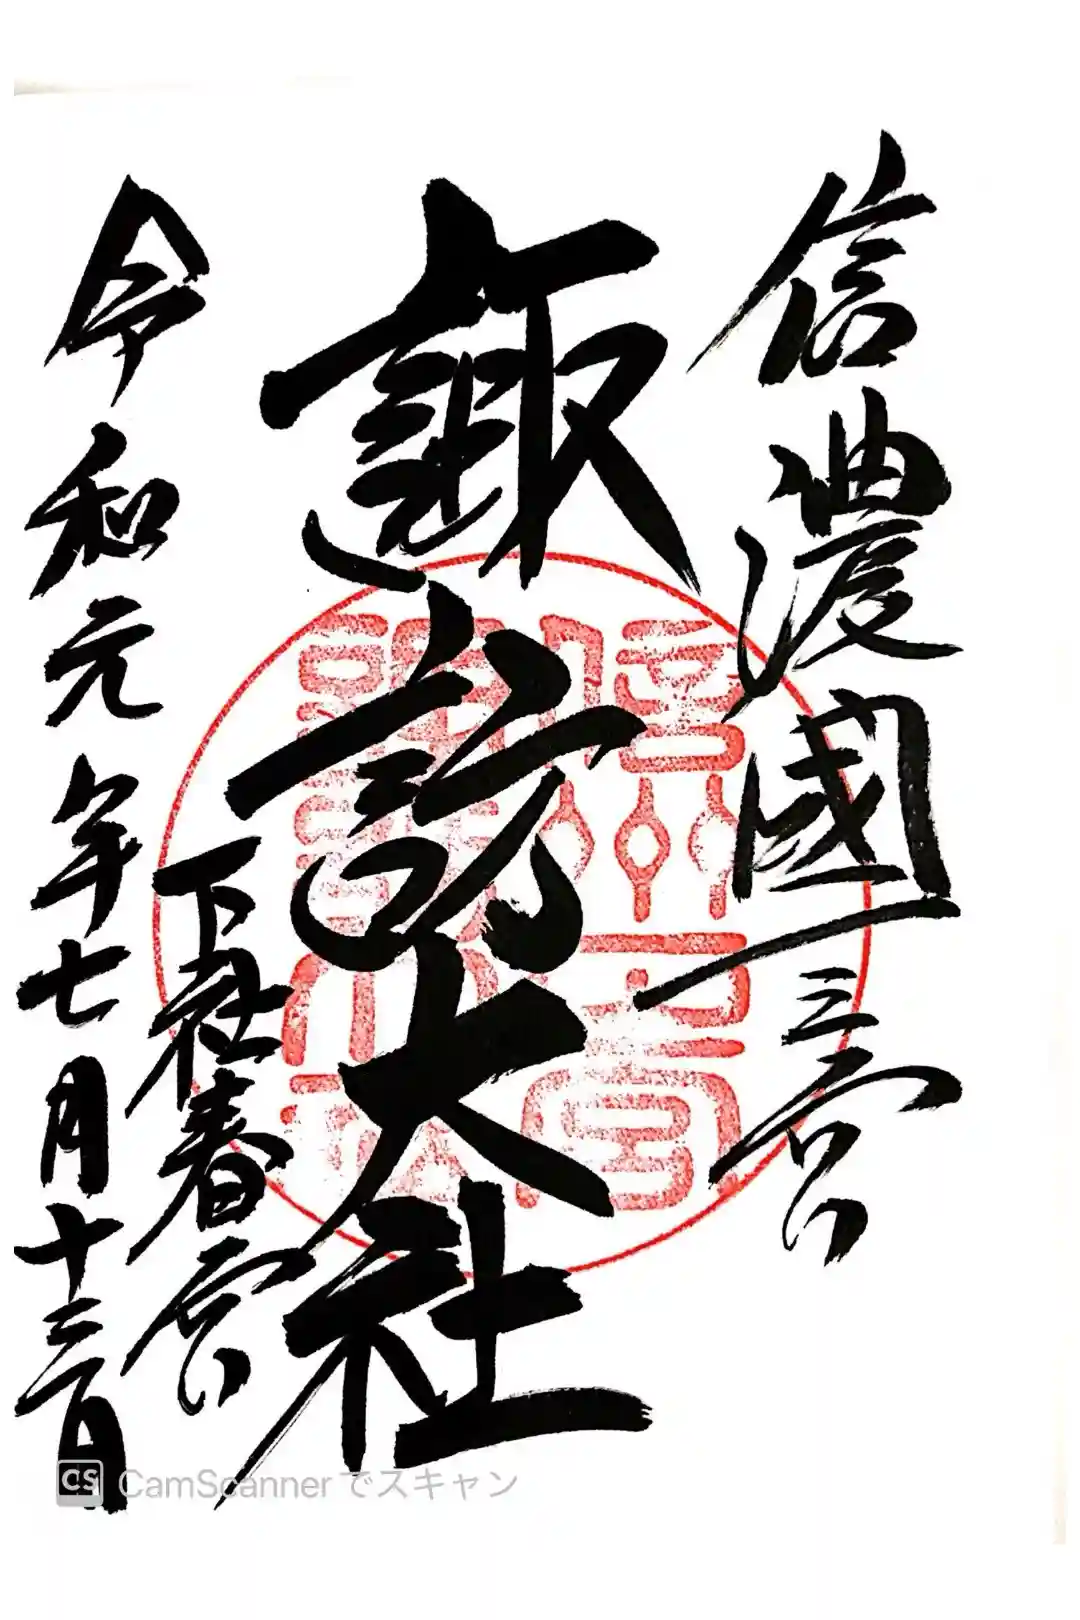 信濃國一之宮
諏訪大社
下社春宮
令和元年七月十三日
CS CamScannerでスキャン